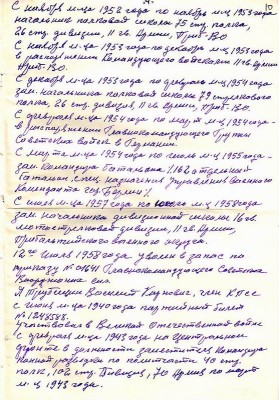 С ноября м-ца 1952 года по ноябрь м-ц 1953 года
начальник полковой школы 75 стр. полка,
26 стр. дивизии, 11 гв. Армии, Приб-ВО
С ноября м-ца 1953 года по декабрь м-ц 1953 года
в распоряжении Командующего войсками 11 гв. Армии
Приб-ВО.
С декабря м-ца 1953 года по февраль м-ц 1954 года
зам. начальника полковой школы 79 стрелкового
полка, 26 стр. дивизия, 11 гв. Армии, Приб-ВО.
С февраля м-ца 1954 года по март м-ц 1954 года
в распоряжении Главнокомандующего Группы
Советских войск в Германии.
С марта м-ца 1954 года по июль м-ц 1955 года
зам. командира батальона /162 отдельный
батальон спец. назначения Управления военного
коменданта гор. Берлин/.
С июля м-ца 1957 года по июль м-ц 1958 года
зам. начальника дивизионной школы 16 гв.
мотострелковой дивизии, 11 гв. Армии,
Прибалтийского военного округа.
12го июля 1958 года, уволен в запас по
приказу № 01641 Главнокомандующего Советских
Вооруженных сил
Я Василий Карпович, член КПСС
с июня м-ца 1940 года партийный билет
Участвовал в Великой Отечественной войне
с февраля м-ца 1943 года на Центральном
фронте в должности заместителя командира
конной разведки по политчасти 40 стр.
полк, 102 стр. Дивизия, 70 Армия по март
м-ц 1943 года.